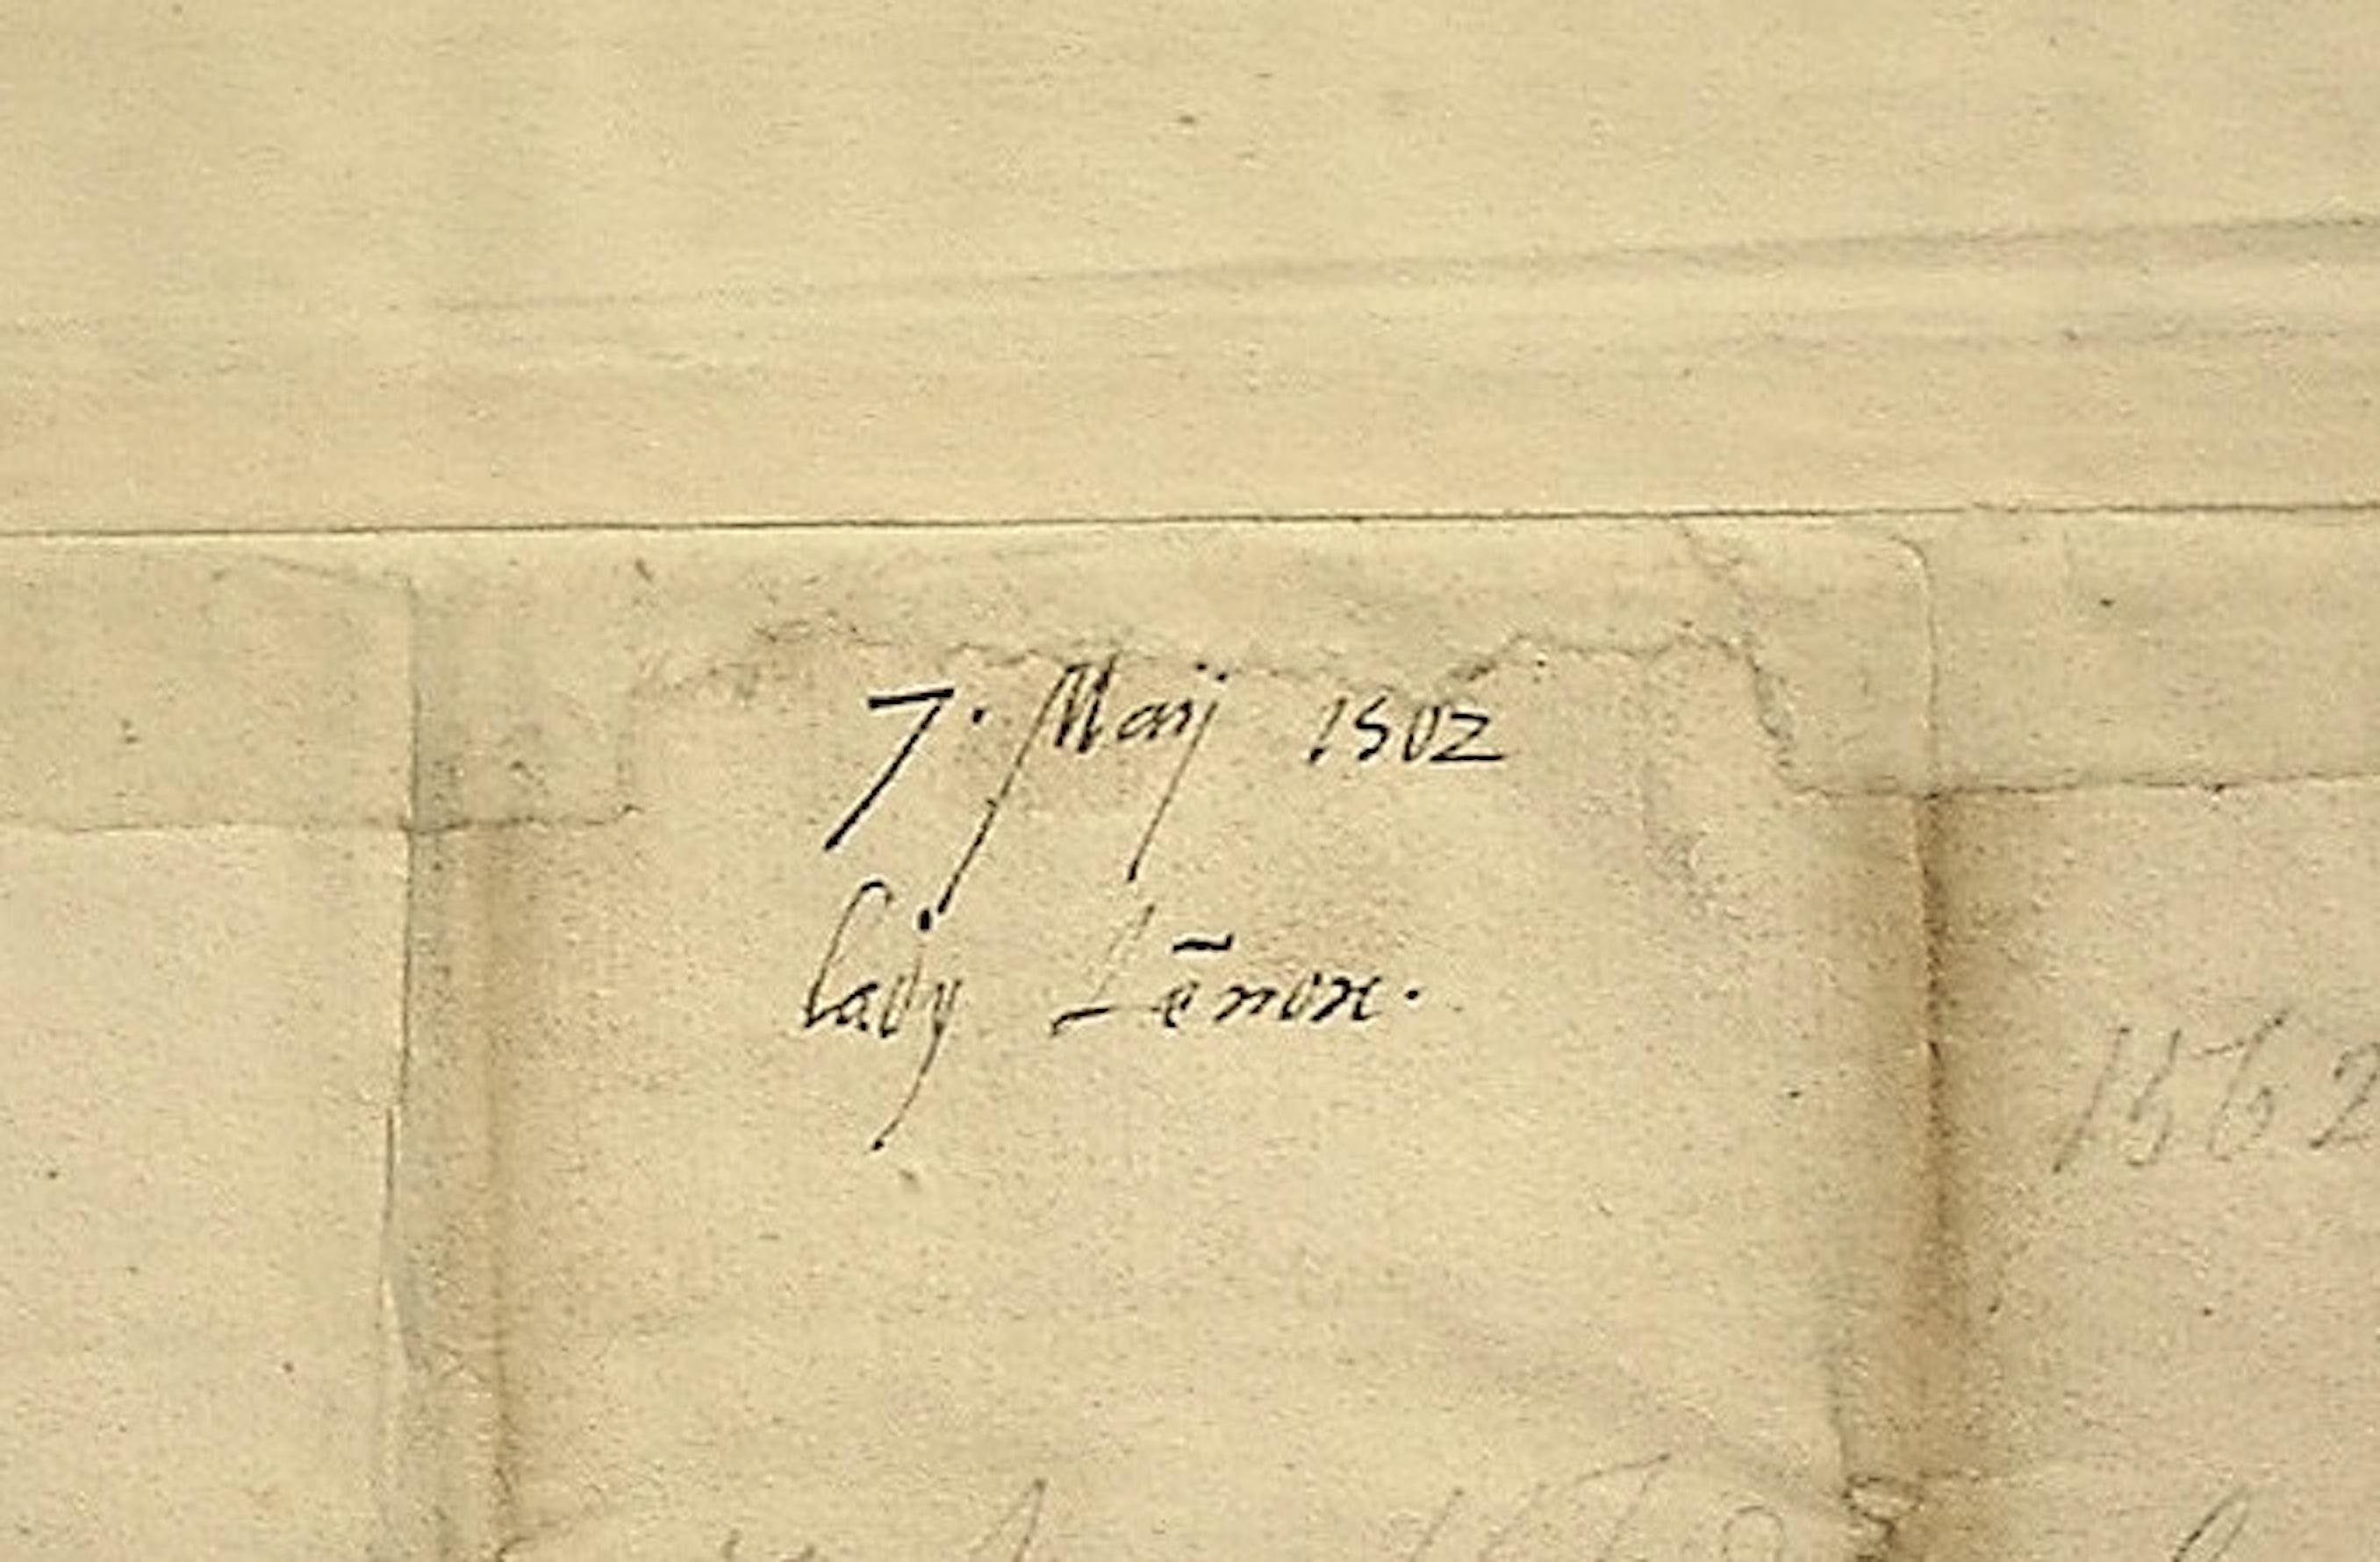 7. Maij 1502
Lady Lēnox.
1562